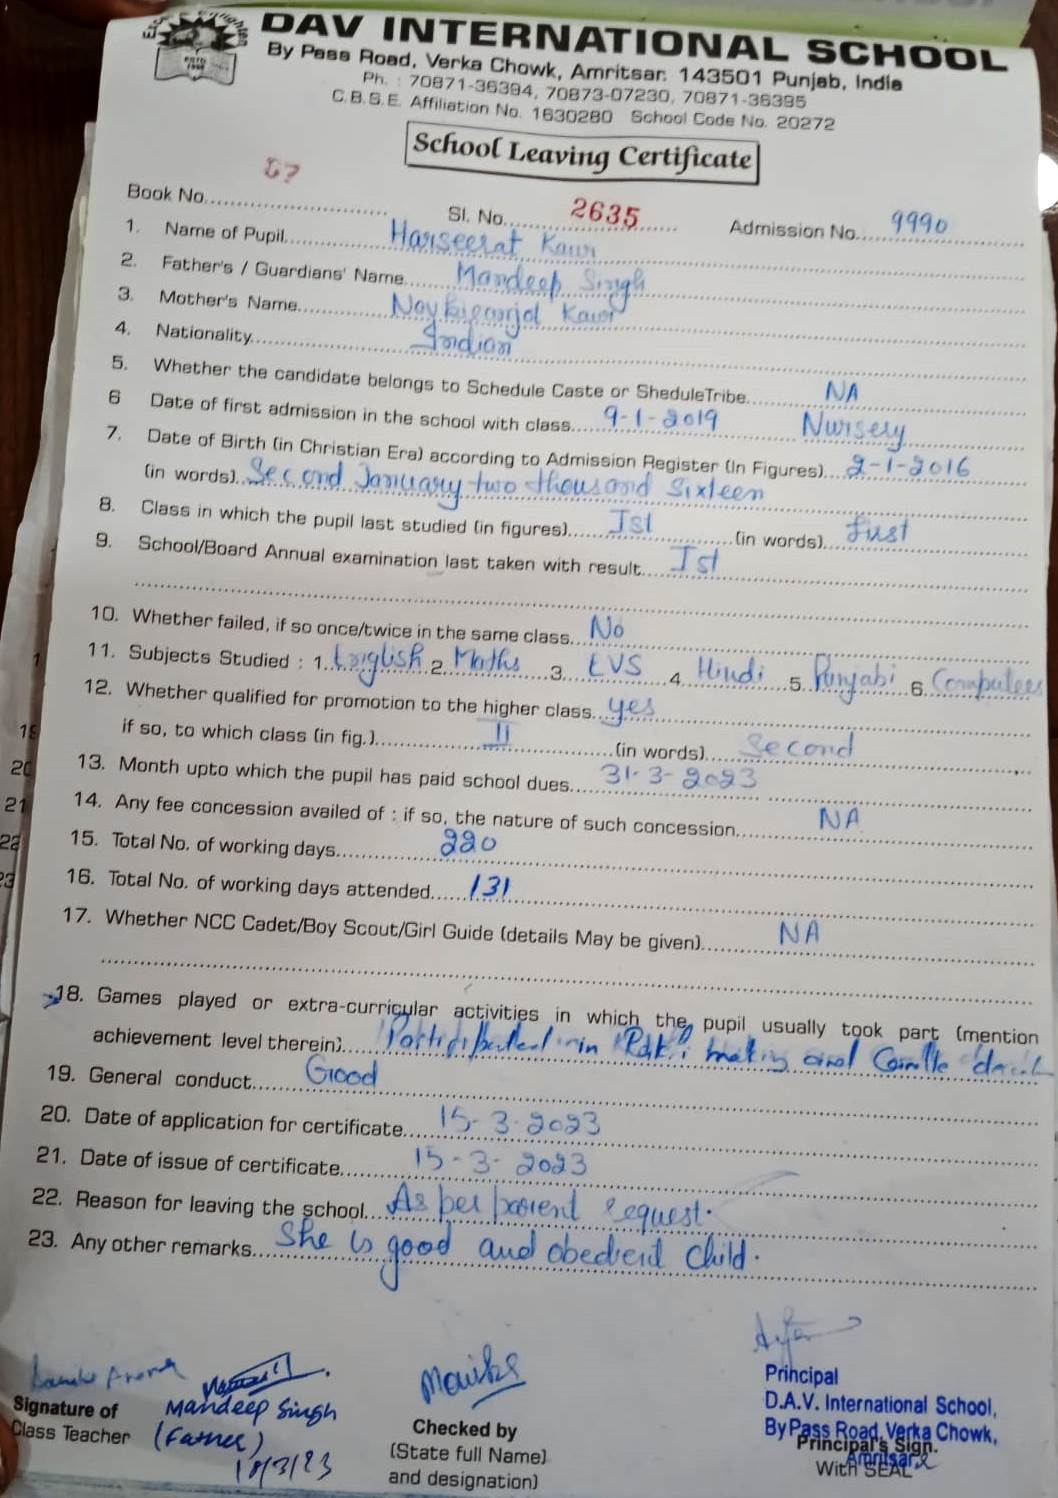 DAV INTERNATIONAL SCHOOL
By Pass Road, Verka Chowk, Amritsar. 143501 Punjab, India
Ph. : 70871-36394, 70873-07230, 70871-36395
C.B.S.E. Affiliation No. 1630280 School Code No. 20272
School Leaving Certificate
Book No. 67 Sl. No. 2635 Admission No. 9990
1. Name of Pupil Harseerat Kaur
2. Father's / Guardians' Name Mandeep Singh
3. Mother's Name Kaur
4. Nationality Indian
5. Whether the candidate belongs to Schedule Caste or SheduleTribe NA
6 Date of first admission in the school with class 9-1-2019 Nursery
7. Date of Birth (in Christian Era) according to Admission Register (In Figures) 2-1-2016
(in words) Second January two thousand Sixteen
8. Class in which the pupil last studied (in figures) Ist (in words) first
9. School/Board Annual examination last taken with result Ist
10. Whether failed, if so once/twice in the same class No
11. Subjects Studied : 1. English 2. Maths 3. EVS 4. Hindi 5. Punjabi 6. Computer
12. Whether qualified for promotion to the higher class yes
if so, to which class (in fig.) II (in words) Second
13. Month upto which the pupil has paid school dues 31-3-2023
14. Any fee concession availed of : if so, the nature of such concession NA
15. Total No. of working days 220
16. Total No. of working days attended 131
17. Whether NCC Cadet/Boy Scout/Girl Guide (details May be given) NA
18. Games played or extra-curricular activities in which the pupil usually took part (mention
achievement level therein) Participated in Rakhi making and Candle
19. General conduct Good
20. Date of application for certificate 15-3-2023
21. Date of issue of certificate 15-3-2023
22. Reason for leaving the school As per parent request.
23. Any other remarks She is good and obedient child.
Arora
Signature of
Class Teacher
Mandeep Singh
(Father)
18/3/23
Monika
Checked by
(State full Name)
and designation)
Principal
D.A.V. International School,
By Pass Road, Verka Chowk,
Amritsar
Principal's Sign.
With SEAL
1
19
20
21
22
23